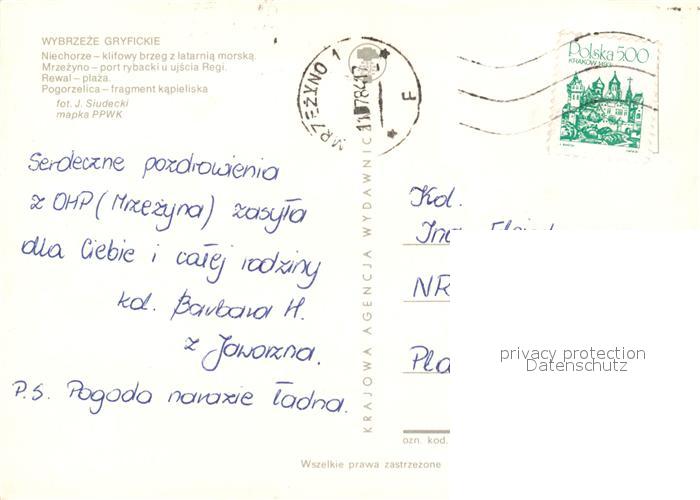 WYBRZEŻE GRYFICKIE
Niechorze – klifowy brzeg z latarnią morską.
Mrzeżyno – port rybacki u ujścia Regi.
Rewal – plaża.
Pogorzelica – fragment kąpieliska
fot. J. Siudecki
mapka PPWK
MRZEŻYNO 1
Polska 500
KRAKÓW
Serdeczne pozdrowienia
z OHP (Mrzeżyna) zasyła
dla Ciebie i całej rodziny
kol. Barbara H.
z Jaworzna.
P.S. Pogoda narazie ładna.
KRAJOWA AGENCJA WYDAWNIC
Kol.
NR
Pla
privacy protection
Datenschutz
ozn. kod.
Wszelkie prawa zastrzeżone